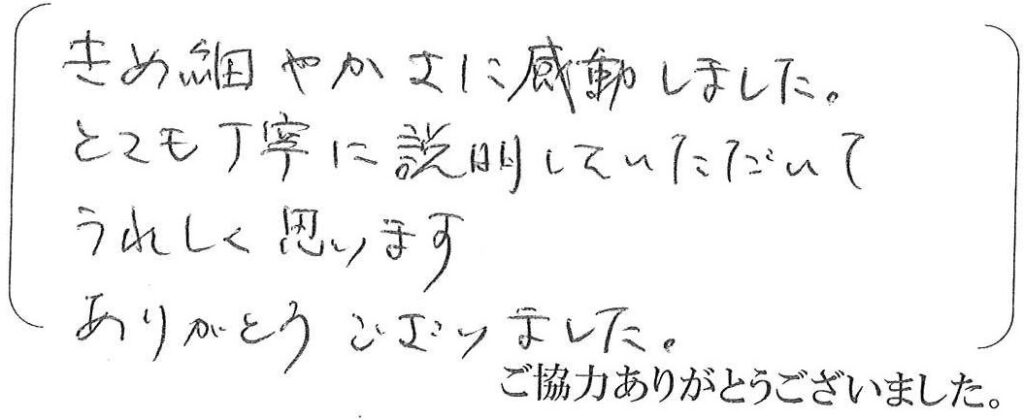 きめ細やかさに感動しました。
とても丁寧に説明していただいて
うれしく思います
ありがとうございました。
ご協力ありがとうございました。